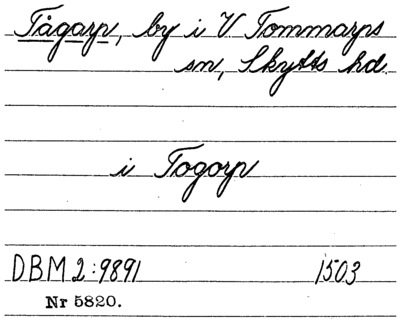 Tågarp, by i V Tommarps
sn, Skytts hd.
i Togorp
DBM 2:9891 1503
Nr 5820.